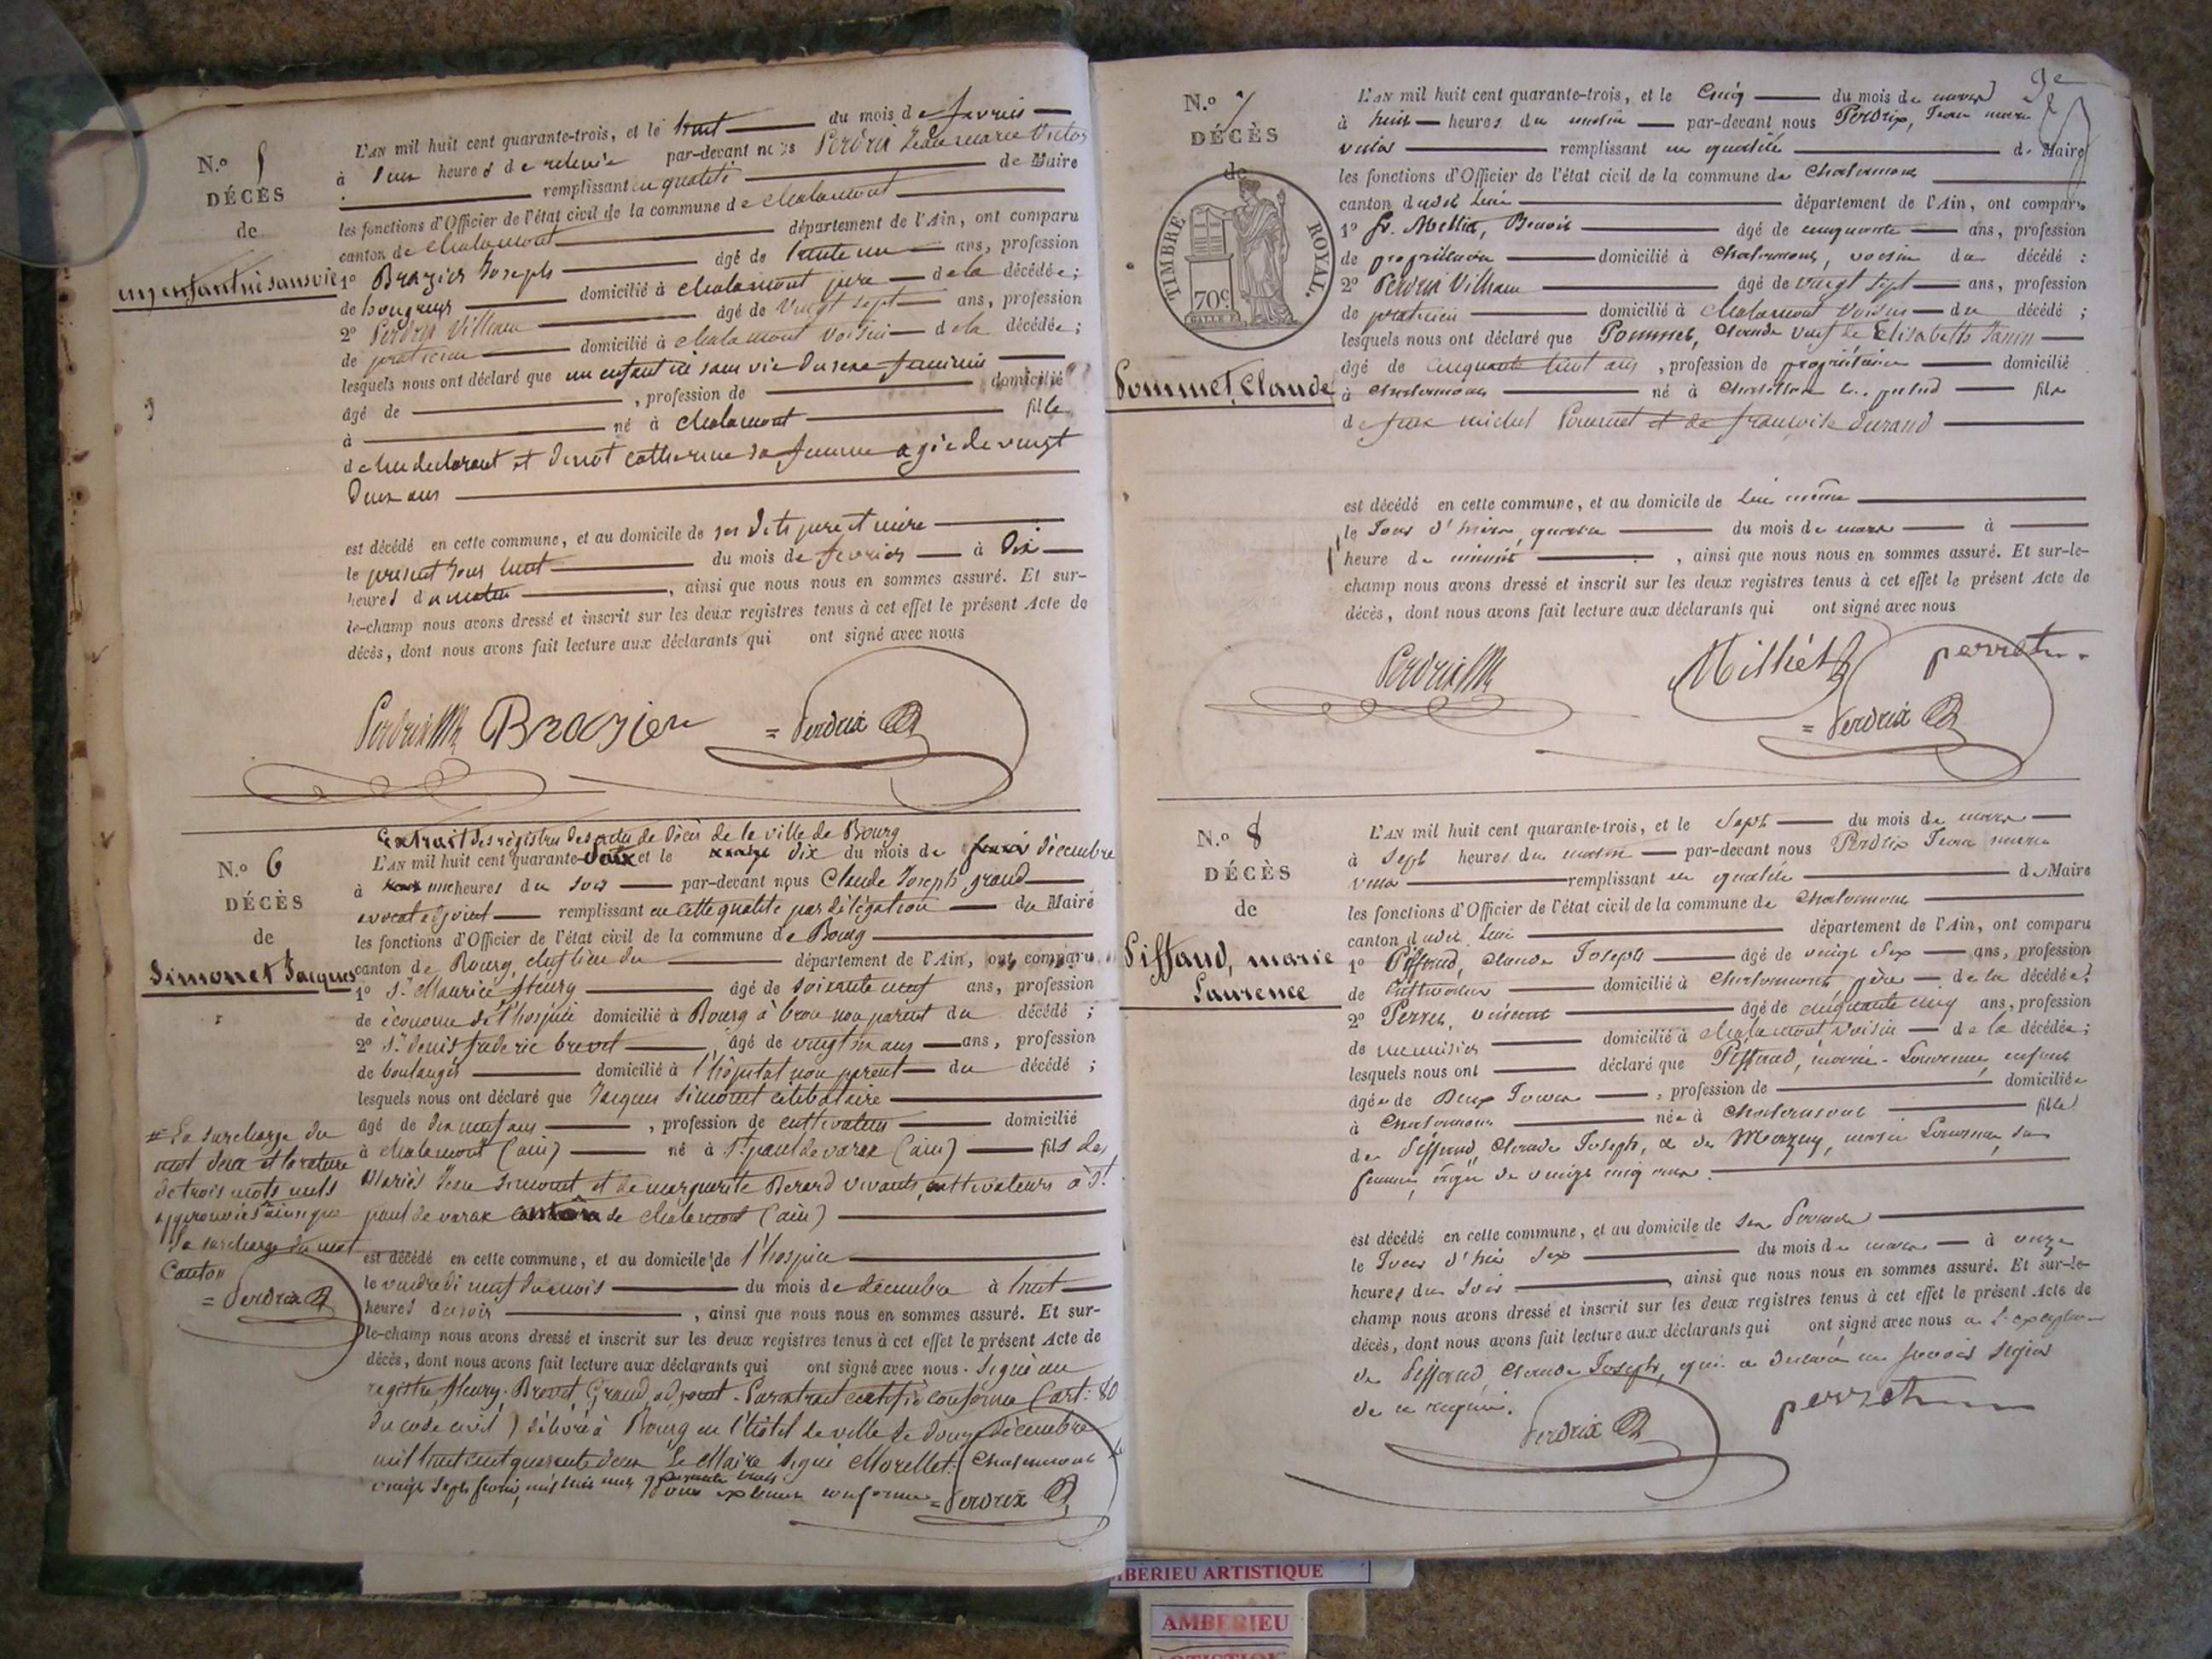 N.o 5
DÉCÈS
de
un enfant né sans vie
L'AN mil huit cent quarante-trois, et le huit du mois de fevrier
à deux heures de relevée par-devant nous Perdrix Jean marie Victor
remplissant en qualité de Maire
les fonctions d'Officier de l'état civil de la commune de chalamont
canton de chalamont département de l'Ain, ont comparu
1o Brazier Joseph âgé de trente un ans, profession
de domicilié à chalamont père de la décédée;
2o Perdrix Villiam âgé de vingt sept ans, profession
de praticien domicilié à chalamont voisin de la décédée;
lesquels nous ont déclaré que un enfant né sans vie du sexe feminin
âgé de , profession de domicilié
à né à chalamont fille
de lui declarant et catherine sa femme agée de vingt
deux ans
est décédé en cette commune, et au domicile de ses dits père et mère
le présent jour huit du mois de fevrier à dix
heures du matin , ainsi que nous nous en sommes assuré. Et sur-
le-champ nous avons dressé et inscrit sur les deux registres tenus à cet effet le présent Acte de
décès, dont nous avons fait lecture aux déclarants qui ont signé avec nous
Perdrix Brazier = Perdrix
Extrait des registres des actes de décès de la ville de Bourg
N.o 6
DÉCÈS
de
Simonet Jacques
L'AN mil huit cent quarante-deux et le dix du mois de décembre
à une heures du soir par-devant nous Claude Joseph grand
avocat adjoint remplissant en cette qualité par délégation du Maire
les fonctions d'Officier de l'état civil de la commune de Bourg
canton de Bourg, chef lieu du département de l'Ain, ont comparu
1o Sr. Maurice fleury âgé de soixante neuf ans, profession
de économe de l'hospice domicilié à Bourg à brou non parent du décédé;
2o Sr. denis frederic brevet âgé de vingt ans, profession
de boulanger domicilié à l'hôpital non parent du décédé;
lesquels nous ont déclaré que Jacques Simonet célibataire
âgé de dix neuf ans , profession de cultivateur domicilié
à chalamont (ain) né à St. paul de varax (ain) fils des
Mariés Jean Simonet et de marguerite Berard vivants, cultivateurs à St.
paul de varax canton de chalamont (ain)
est décédé en cette commune, et au domicile de l'hospice
le vendredi neuf du mois du mois de décembre à huit
heures du soir , ainsi que nous nous en sommes assuré. Et sur-
le-champ nous avons dressé et inscrit sur les deux registres tenus à cet effet le présent Acte de
décès, dont nous avons fait lecture aux déclarants qui ont signé avec nous. Signé au
registre fleury, Brevet, Grand, adjoint. Par extrait certifié conforme (art: 80
du code civil) délivré à Bourg en l'hôtel de ville le douze décembre
mil huit cent quarante deux Le Maire signé Morellet. Chalamont le
vingt sept fevrier mil huit cent quarante trois Pour conforme = Perdrix
# La surcharge du
mot deux et la rature
de trois mots nuls
approuvées ainsi que
la surcharge du mot
Canton
= Perdrix
N.o 7
DÉCÈS
de
TIMBRE ROYAL.
70c.
Pommet, Claude
L'AN mil huit cent quarante-trois, et le Cinq du mois de mars
à huit heures du matin par-devant nous Perdrix, Jean marie
victor remplissant en qualité de Maire
les fonctions d'Officier de l'état civil de la commune de Chalamont
canton dudit lieu département de l'Ain, ont comparu
1o Sr. Milliet, Benoit âgé de cinquante ans, profession
de propriétaire domicilié à Chalamont, voisin du décédé:
2o Perdrix Villiam âgé de vingt sept ans, profession
de praticien domicilié à chalamont voisin du décédé;
lesquels nous ont déclaré que Pommet, Claude veuf de Elisabeth Janin
âgé de cinquante huit ans , profession de propriétaire domicilié
à Chalamont né à Chatillon la palud fils
de feux michel Pommet et de françoise durand
est décédé en cette commune, et au domicile de lui même
le Jour d'hier, quatre du mois de mars à
heure de minuit , ainsi que nous nous en sommes assuré. Et sur-le-
champ nous avons dressé et inscrit sur les deux registres tenus à cet effet le présent Acte de
décès, dont nous avons fait lecture aux déclarants qui ont signé avec nous
Perdrix Milliet perret
= Perdrix
N.o 8
DÉCÈS
de
Piffaud, marie
Laurence
L'AN mil huit cent quarante-trois, et le Sept du mois de mars
à Sept heures du matin par-devant nous Perdrix Jean marie
victor remplissant en qualité de Maire
les fonctions d'Officier de l'état civil de la commune de Chalamont
canton dudit lieu département de l'Ain, ont comparu
1o Piffaud, Claude Joseph âgé de vingt six ans, profession
de cultivateur domicilié à Chalamont, père de la décédée:
2o Perret, vincent âgé de cinquante cinq ans, profession
de menuisier domicilié à chalamont voisin de la décédée;
lesquels nous ont déclaré que Piffaud, marie-Laurence, enfant
âgée de Deux Jours , profession de domiciliée
à Chalamont née à Chalamont fille
de Piffaud, Claude Joseph, et de Mazuy, marie Laurence, sa
femme, âgée de vingt cinq ans.
est décédé en cette commune, et au domicile de ses Parents
le Jour d'hier six du mois de mars à onze
heures du soir , ainsi que nous nous en sommes assuré. Et sur-le-
champ nous avons dressé et inscrit sur les deux registres tenus à cet effet le présent Acte de
décès, dont nous avons fait lecture aux déclarants qui ont signé avec nous à l'exception
de Piffaud Claude Joseph, qui a déclaré ne savoir signer
de ce requis.
Perdrix perret
AMBERIEU ARTISTIQUE
AMBERIEU